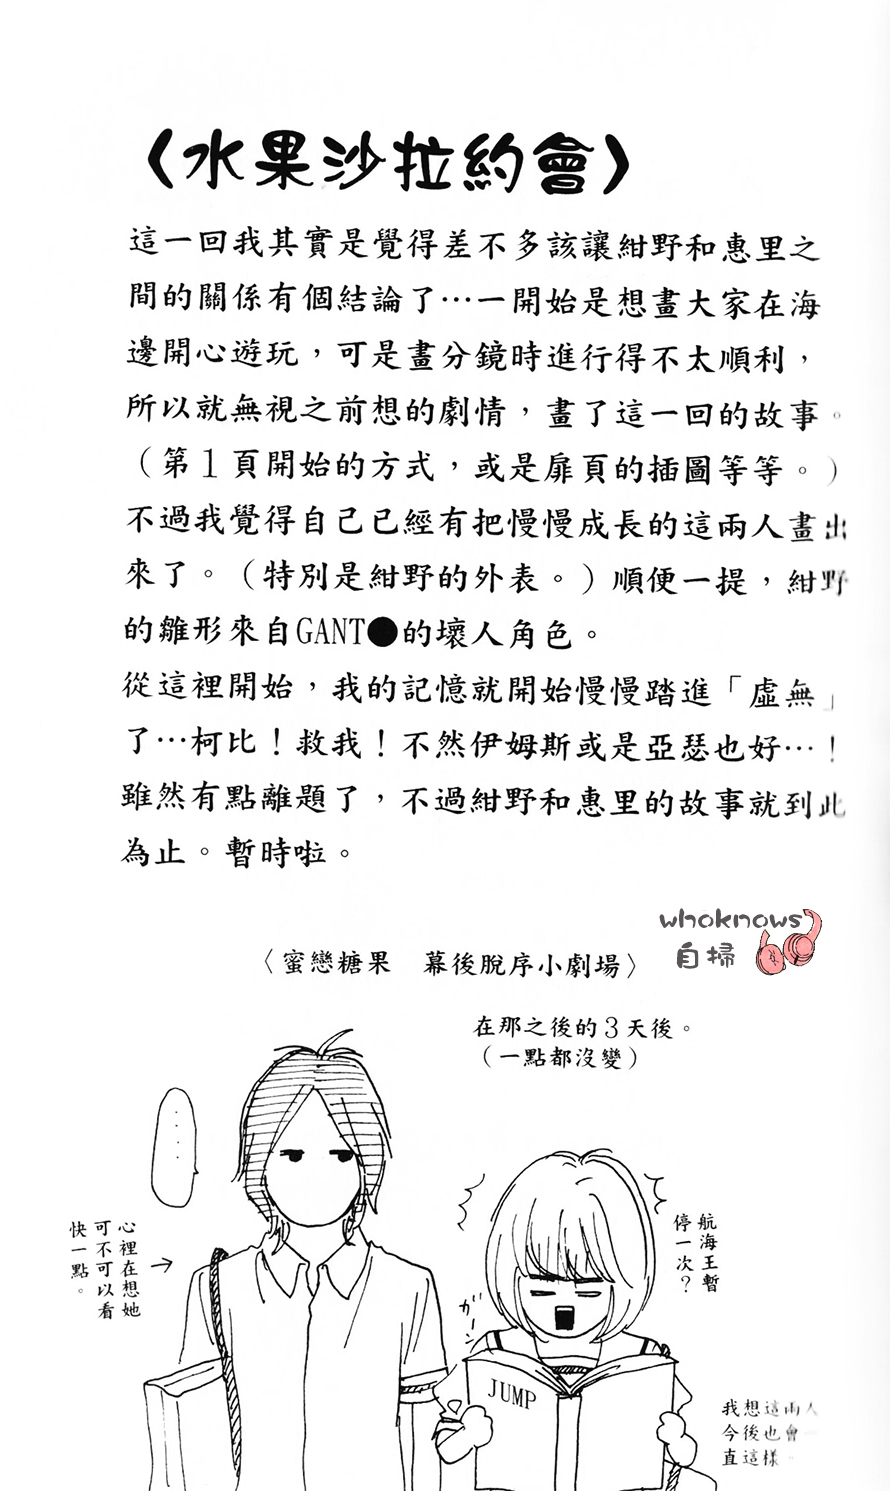 〈水果沙拉約會〉
這一回我其實是覺得差不多該讓紺野和惠里之
間的關係有個結論了…一開始是想畫大家在海
邊開心遊玩，可是畫分鏡時進行得不太順利，
所以就無視之前想的劇情，畫了這一回的故事。
（第1頁開始的方式，或是扉頁的插圖等等。）
不過我覺得自己已經有把慢慢成長的這兩人畫出
來了。（特別是紺野的外表。）順便一提，紺野
的雛形來自GANT●的壞人角色。
從這裡開始，我的記憶就開始慢慢踏進「虛無」
了…柯比！救我！不然伊姆斯或是亞瑟也好…！
雖然有點離題了，不過紺野和惠里的故事就到此
為止。暫時啦。
whoknows
自掃
〈蜜戀糖果　幕後脫序小劇場〉
在那之後的3天後。
（一點都沒變）
……
心裡在想她
可不可以看
快一點。
航海王暫
停一次？
ガーン
JUMP
我想這兩人
今後也會一
直這樣。